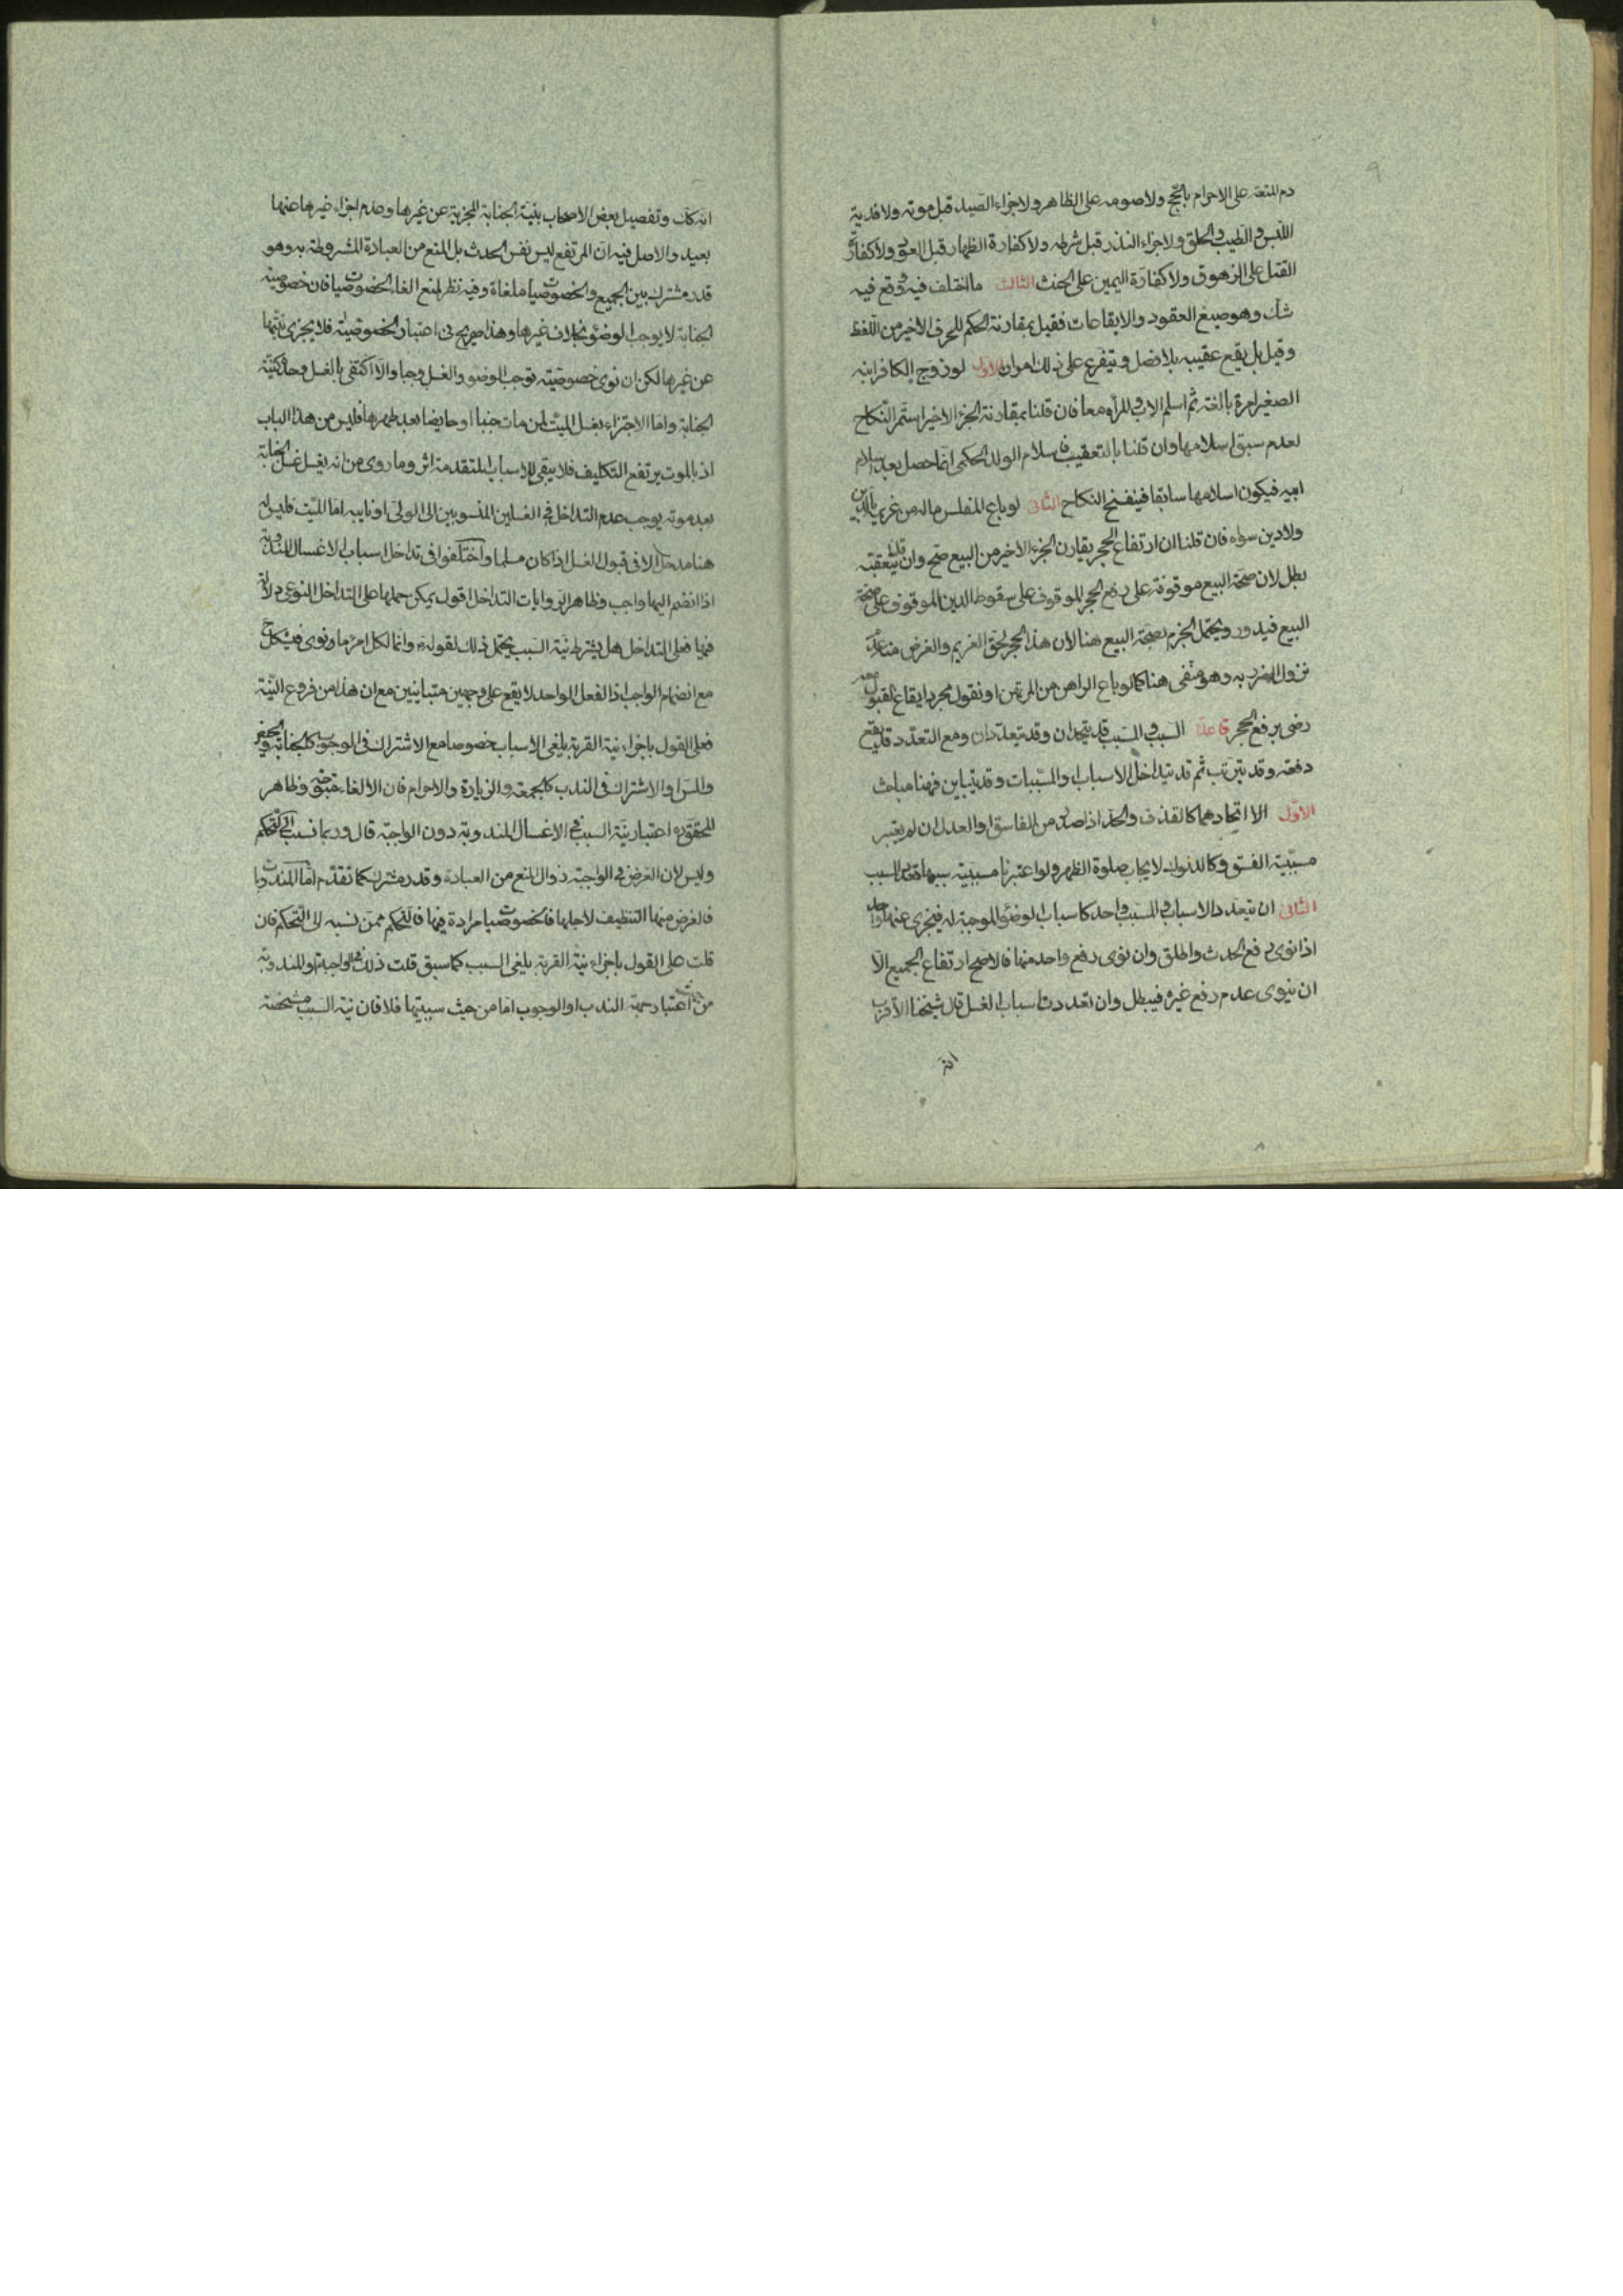 ٩
دم المتعة على الاحرام بالحج ولا صومه على الظاهر ولا اجزاء الصيد قبل موته ولا فدية
اللبس والطيب والحلق ولا اجزاء النذر قبل شرطه ولا كفارة الظهار قبل العود ولا كفارة
القتل على الزهوق ولا كفارة اليمين على الحنث الثالث ما اختلف فيه ووقع فيه
شك وهو صيغ العقود والايقاعات فقيل بمقارنة الحكم للحرف الاخير من اللفظ
وقيل بل يقع عقيبه بلا فصل ويتفرع على ذلك امران الاول لو زوج الكافر ابنه
الصغير امرة بالغة ثم اسلم الاب والمرأه معا فان قلنا بمقارنة الجزء الاخير استمر النكاح
لعدم سبق اسلامها وان قلنا بالتعقيب فاسلام الولد الحكمى انما حصل بعد اسلام
ابيه فيكون اسلامها سابقا فينفسخ النكاح الثانى لو باع المفلس ماله من غريمه بالدين
ولا دين سواه فان قلنا ان ارتفاع الحجر يقارن الجزء الاخير من البيع صح وان قلنا يتعقبه
بطل لان صحة البيع موقوفة على رفع الحجر الموقوف على سقوط الدين الموقوف على صحة
البيع فيدور ويحتمل الجزم بصحة البيع هنا لان هذا الحجر لحق الغريم والغرض هنا عدم
نزول الضرر به وهو منفى هنا كما لو باع الراهن من المرتهن او نقول مجرد ايقاع القبول معه
رضى برفع الحجر قاعدة السبب والمسبب قد يتحدان وقد يتعددان ومع التعدد قد يقع
دفعة وقد يترتب ثم قد يتداخل الاسباب والمسببات وقد يتباين فههنا مباحث
الاول الا اتحادهما كالقذف والحد اذا صدر من الفاسق او العدل ان لم يعتبر
مسببية الفسق وكالدلوك لايجاب صلوة الظهر ولو اعتبرنا مسببية سببها تعدد السبب
الثانى ان يتعدد الاسباب والمسبب واحد كاسباب الوضوء الموجبة له فيجزى عنها واحد
اذا نوى رفع الحدث واطلق وان نوى رفع واحد منها فالاصح ارتفاع الجميع الا
ان ينوى عدم رفع غيره فيبطل وان تعددت اسباب الغسل قال شيخنا الاقرب
انه
انه كك وتفصيل بعض الاصحاب بنية الجنابة المجزية عن غيرها وعدم اجزاء غيرها عنها
بعيد والاصل فيه ان المرتفع ليس نفس الحدث بل المنع من العبادة المشروطة به وهو
قدر مشترك بين الجميع والخصوصيات ملغاة وفيه نظر لمنع الغاء الخصوصيات فان خصوصية
الجنابة لا يوجب الوضوء بخلاف غيرها وهذا صريح فى اعتبار الخصوصيات فلا يجزى نيتها
عن غيرها لكن ان نوى خصوصيته توجب الوضوء والغسل وجبا والا اكتفى بالغسل وحده كنية
الجنابة واما الاجتزاء بغسل الميت لمن مات جنبا او حايضا بعد طهرها فليس من هذا الباب
اذ بالموت يرتفع التكليف فلا يبقى للاسباب المتقدمة اثر وما روى من انه يغسل غسل الجنابة
بعد موته يوجب عدم التداخل فى الغسلين المنسوبين الى الولى او نايبه اما الميت فليس له
هنا مدخل الا فى قبول الغسل اذا كان مسلما واختلفوا فى تداخل اسباب الاغسال المندوبة
اذا انضم اليها واجب وظاهر الروايات التداخل اقول يمكن حملها على التداخل النوعى دلالة
فيها فعلى التداخل هل يشترط نية السبب يحتمل ذلك لقوله ع وانما لكل امرئ ما نوى فيشكل ح
مع انضمام الواجب اذ الفعل الواحد لا يقع على وجهين متباينين مع ان هذا من فروع النية
فعلى القول باجزاء نية القربة يلغى الاسباب خصوصا مع الاشتراك فى الوجوب كالجنابة والحيض
والمس او الاشتراك فى الندب كالجمعة والزيارة والاحرام فان الالغاء متجه وظاهر
المحقق ره اعتبار نية السبب فى الاغسال المندوبة دون الواجبة قال وربما نسب الى التحكم
وليس لان الغرض فى الواجبة زوال المنع من العبادة وقدر مشترك كما تقدم اما المندوبات
فالغرض منها التنظيف لاجلها فالخصوصيات مرادة فيها فالتحكم ممن نسبه الى التحكم فان
قلت على القول باجزاء نية القربة يلغى السبب كما سبق قلت ذلك فى الواجبة او المندوبة
من حيث اعتبار جهة الندب او الوجوب اما من حيث سببيتها فلا فان نية السبب مشخصة